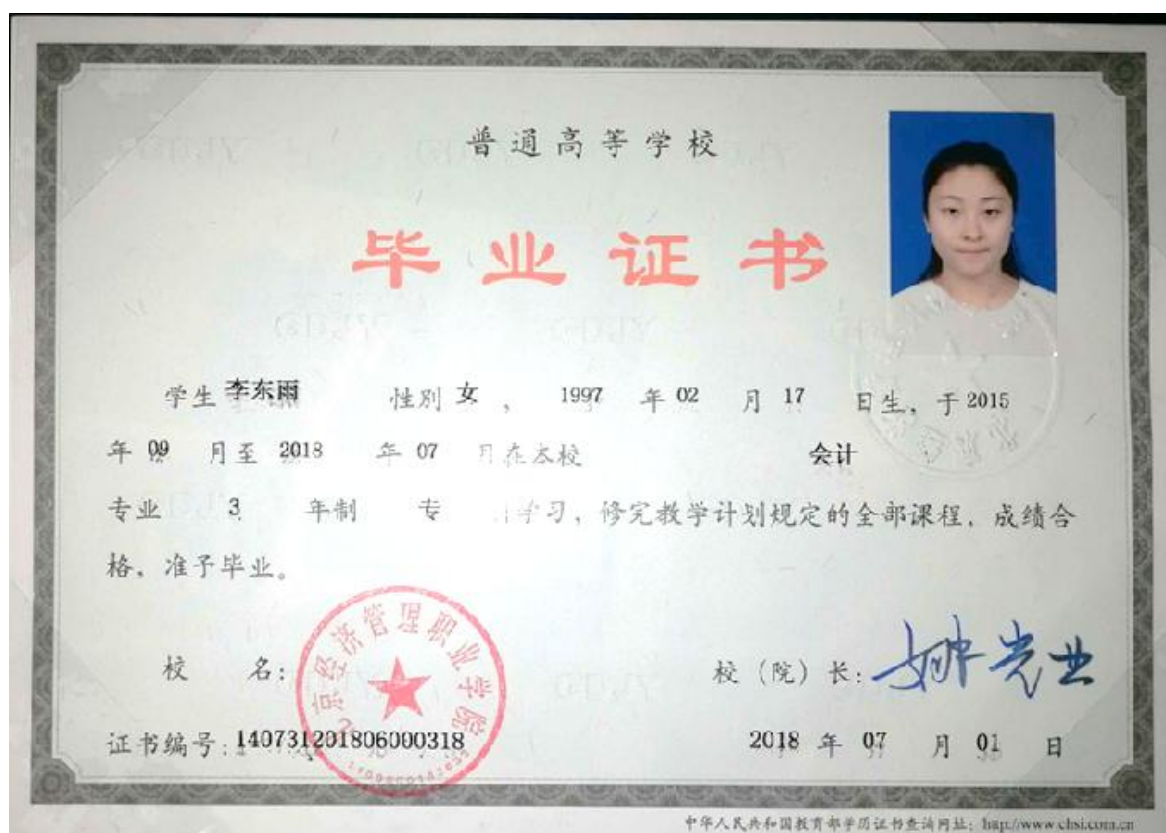 普通高等学校
毕业证书
学生 李东雨 性别 女 , 1997 年 02 月 17 日生, 于 2015
年 09 月至 2018 年 07 月在本校 会计
专业 3 年制 专 学习, 修完教学计划规定的全部课程, 成绩合
格, 准予毕业。
校 名: 校 (院) 长: 姚光业
北京经济管理职业学院
证书编号: 140731201806000318 2018 年 07 月 01 日
中华人民共和国教育部学历证书查询网址: http://www.chsi.com.cn